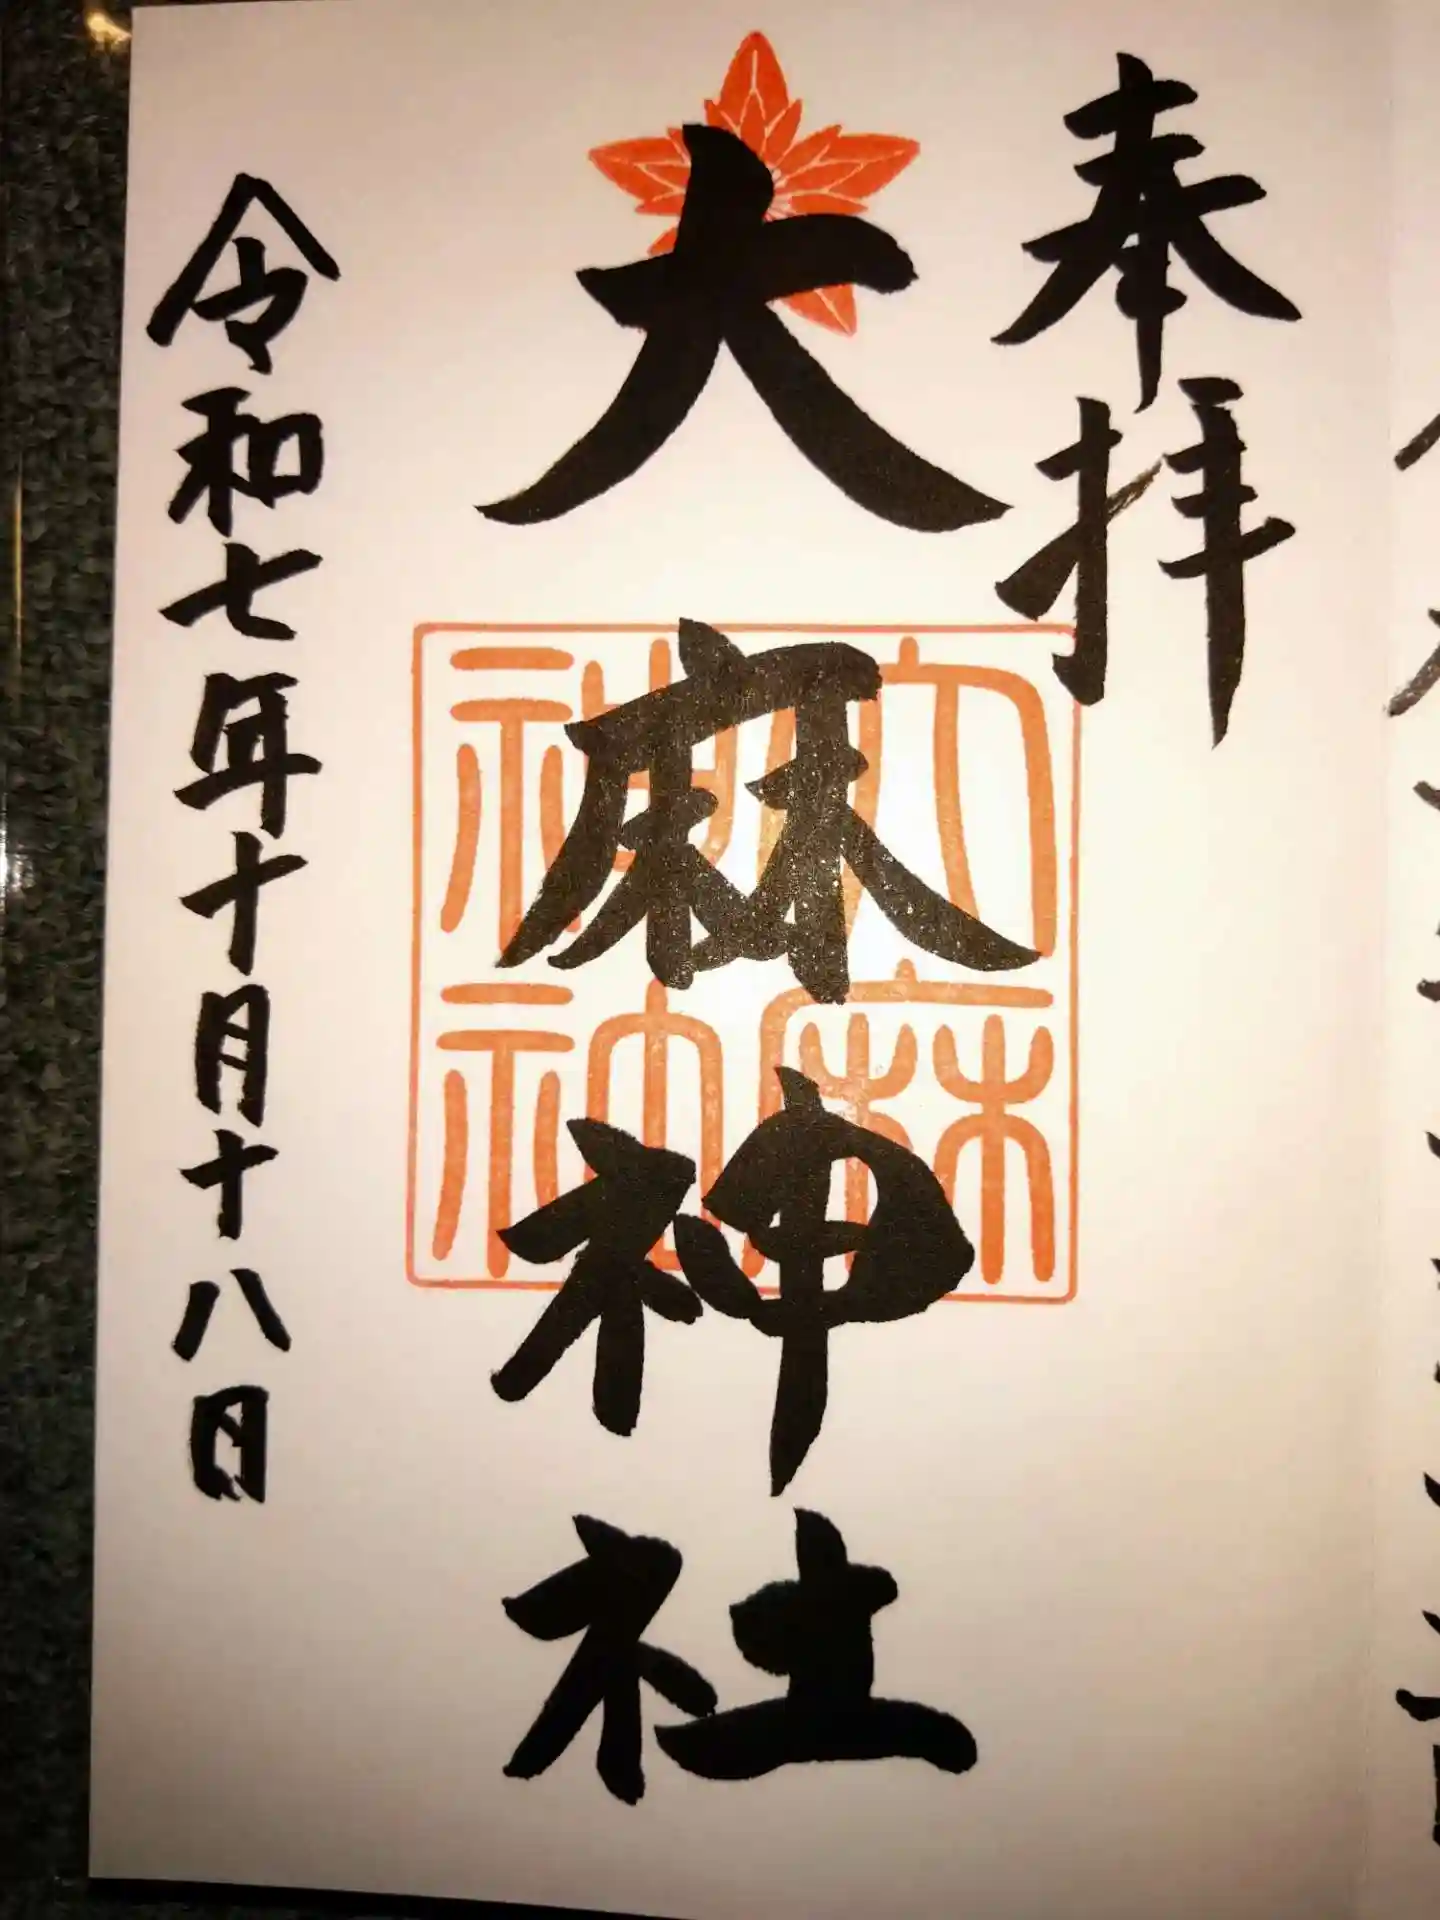 奉拝
大麻神社
神社
大麻
神社
令和七年十月十八日